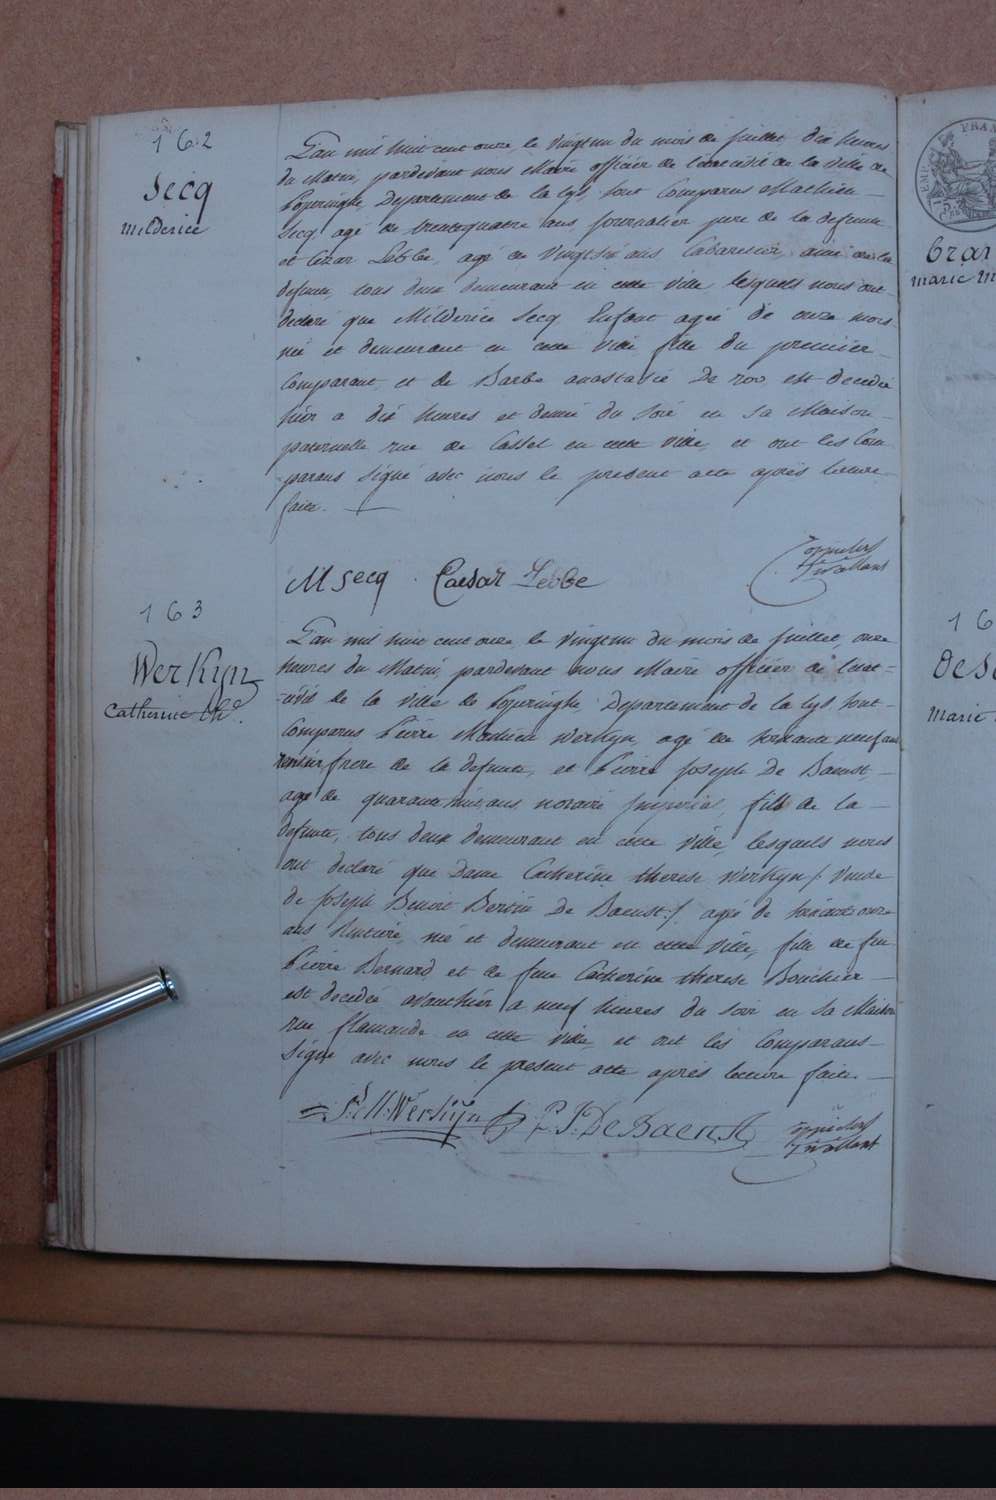 162
Secq
Milderice
L'an mil huit cent onze, le vingt un du mois de Juillet, dix heures
du Matin, pardevant nous Maire officier de l'etat civil de la ville de
Poperinghe, Departement de la Lys, sont Comparus Mathieu
Secq agé de trente quatre ans, journalier pere de la defunte
et Cezar Lebbe, agé de vingt six ans Cabaretier, ami de la
defunte, tous deux demeurant en cette ville lesquels nous ont
declaré que Milderice Secq Enfant agée de onze mois
née et demeurant en cette ville fille du premier
Comparant et de Barbe anastasie De roo, est decedée
hier a dix heures et demie du soir en sa Maison
paternelle rue de Cassel en cette ville, et ont les Com
parans signé avec nous le present acte après lecture
faite.
M Secq Caesar Lebbe
163
Werkyn
Catherine Th.
L'an mil huit cent onze, le vingt un du mois de Juillet, onze
heures du Matin, pardevant nous Maire officier de l'etat
civil de la ville de Poperinghe Departement de la Lys sont
Comparus Pierre Mathieu Werkyn, agé de soixante neuf ans
rentier frere de la defunte, et Pierre Joseph De Baenst,
agé de quarante huit ans notaire imperial, fils de la
defunte, tous deux demeurant en cette ville, lesquels nous
ont declaré que Dame Catherine therese Werkyn / Veuve
de Joseph Benoit Bertin De Baenst / agée de soixante onze
ans Rentiere, née et demeurant en cette ville, fille de feu
Pierre Bernard et de feue Catherine therese Boucher
est decedée avanthier a neuf heures du soir en sa Maison
rue flamande en cette ville, et ont les Comparans
signé avec nous le present acte après lecture faite.
P. M. Werkyn P. J. De Baenst
EMPIRE FRAN
marie M
16
De S
Marie